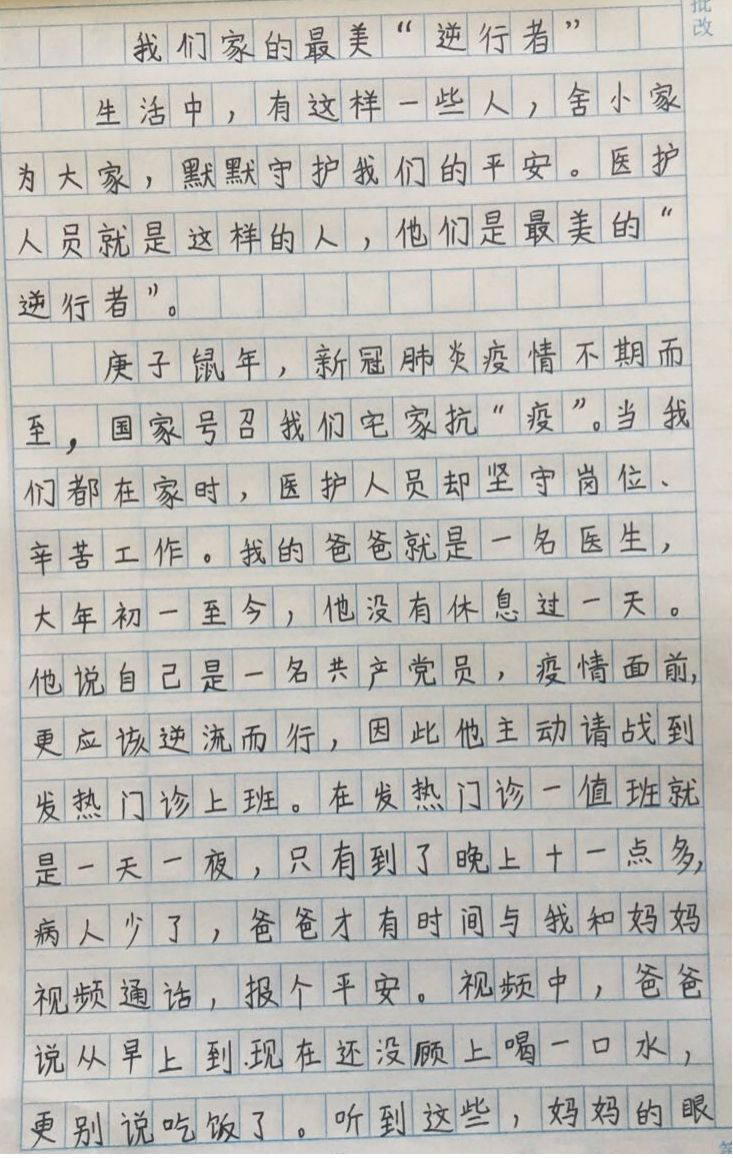 批改
我们家的最美“逆行者”
生活中，有这样一些人，舍小家
为大家，默默守护我们的平安。医护
人员就是这样的人，他们是最美的“
逆行者”。
庚子鼠年，新冠肺炎疫情不期而
至，国家号召我们宅家抗“疫”。当我
们都在家时，医护人员却坚守岗位、
辛苦工作。我的爸爸就是一名医生，
大年初一至今，他没有休息过一天。
他说自己是一名共产党员，疫情面前，
更应该逆流而行，因此他主动请战到
发热门诊上班。在发热门诊一值班就
是一天一夜，只有到了晚上十一点多，
病人少了，爸爸才有时间与我和妈妈
视频通话，报个平安。视频中，爸爸
说从早上到现在还没顾上喝一口水，
更别说吃饭了。听到这些，妈妈的眼